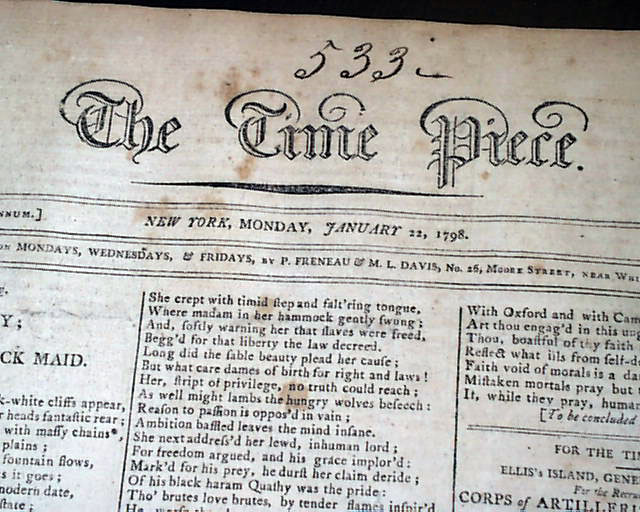 533
The Time Piece.
NNUM.]
NEW YORK, MONDAY, JANUARY 22, 1798.
ON MONDAYS, WEDNESDAYS, & FRIDAYS, BY P. FRENEAU & M. L. DAVIS, No. 26, MOORE STREET, NEAR WH
Y;
CK MAID.
k-white cliffs appear,
r heads fantaſtic rear;
with maſſy chains*,
plains;
fountain flows,
s it goes;
modern date,
ſtate;
She crept with timid ſtep and falt'ring tongue,
Where madam in her hammock gently ſwung;
And, ſoftly warning her that ſlaves were freed,
Begg'd for that liberty the law decreed.
Long did the ſable beauty plead her cauſe;
But what care dames of birth for right and laws!
Her, ſtript of privilege, no truth could reach;
As well might lambs the hungry wolves beſeech:
Reaſon to paſſion is oppos'd in vain;
Ambition baffled leaves the mind inſane.
She next addreſs'd her lewd, inhuman lord;
For freedom argued, and his grace implor'd:
Mark'd for his prey, he durſt her claim deride;
Of his black haram Quaſhy was the pride:
Tho' brutes love brutes, by tender flames inſpir'd
With Oxford and with Cam
Art thou engag'd in this un
Thou, boaſtful of thy faith
Reflect what ills from ſelf-d
Faith void of morals is a da
Miſtaken mortals pray but
It, while they pray, human
[To be concluded
FOR THE TI
ELLIS's ISLAND, GENE
For the Recru
CORPS of ARTILLER